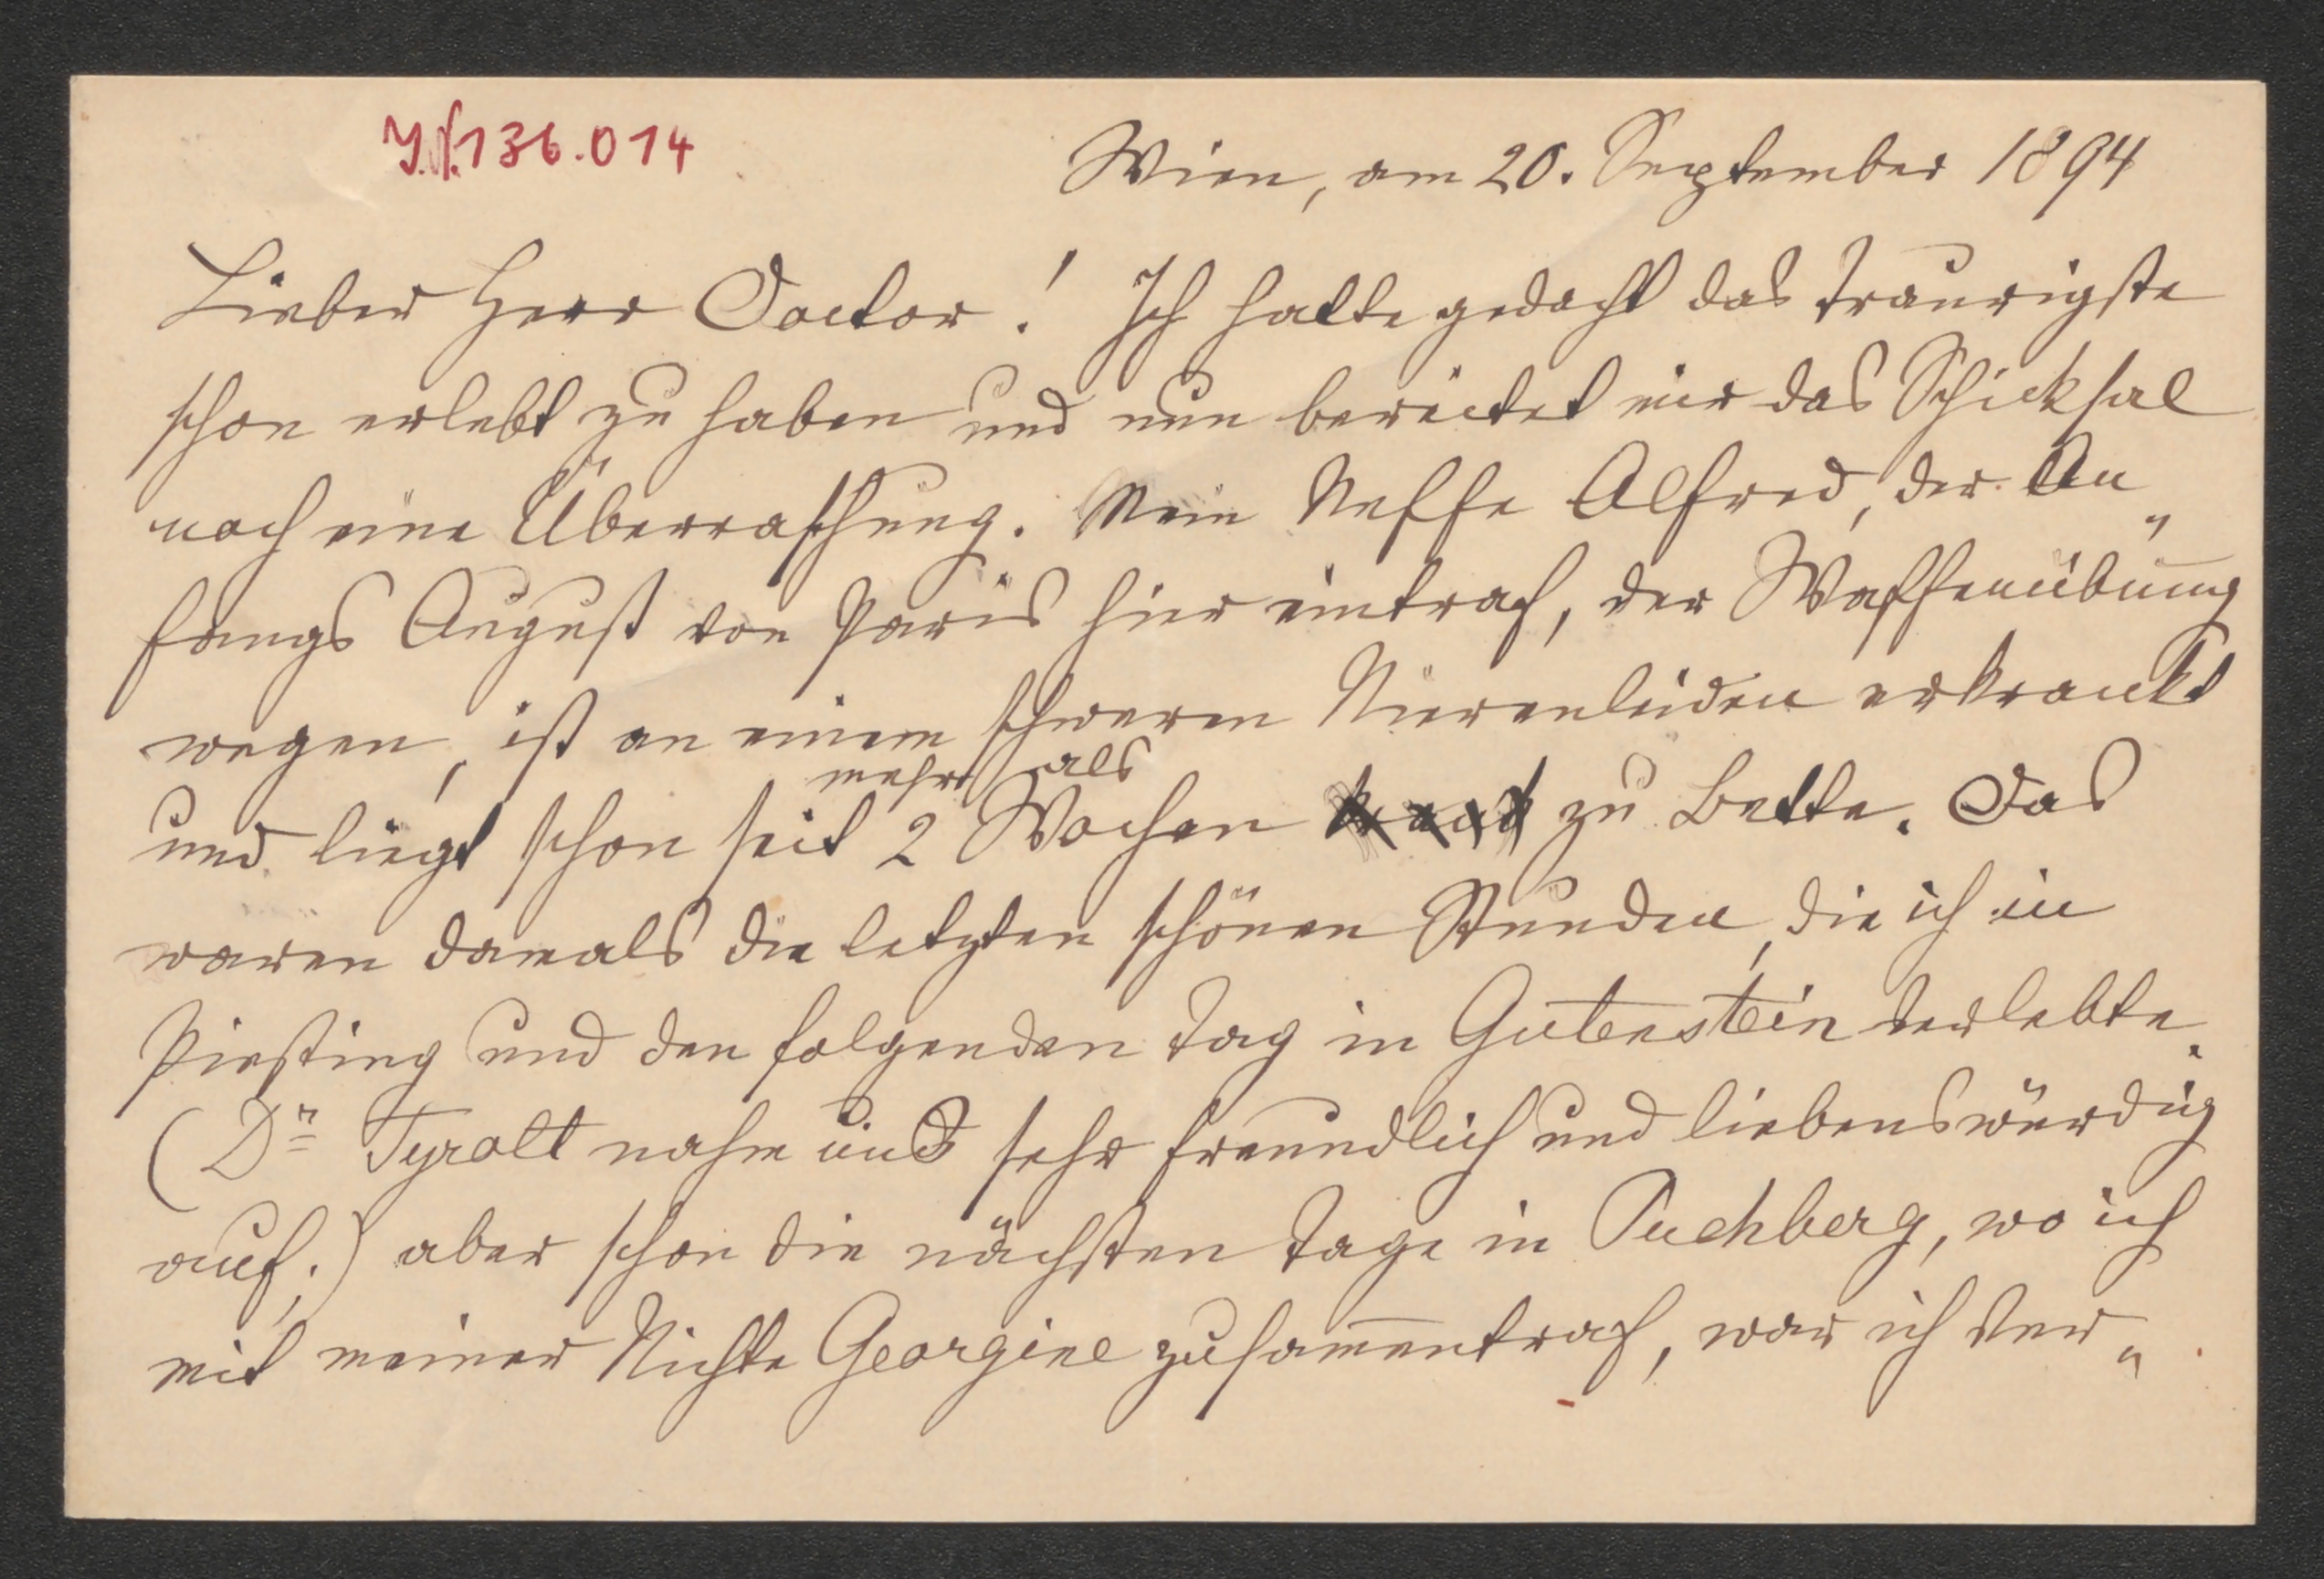 J.N.136.014
Wien, am 20. September 1894
Lieber Herr Doctor! Ich hatte gedacht das traurigste
schon erlebt zu haben und nun bereitet mir das Schicksal
noch eine Überraschung. Mein Neffe Alfred, der An„
fangs August von Paris hier eintraf, der Waffenübung
wegen, ist an einem schweren Nierenleiden erkrankt
mehr als
und liegt schon seit 2 Wochen zu Bette. Das
waren damals die letzten schönen Stunden, die ich in
Piesting und den folgenden Tag in Gutenstein verlebte.
(Dr Tyrolt nahm uns sehr freundlich und liebenswürdig
auf;) aber schon die nächsten Tage in Puchberg, wo ich
mit meiner Nichte Georgine zusam̅entraf, war ich ver„